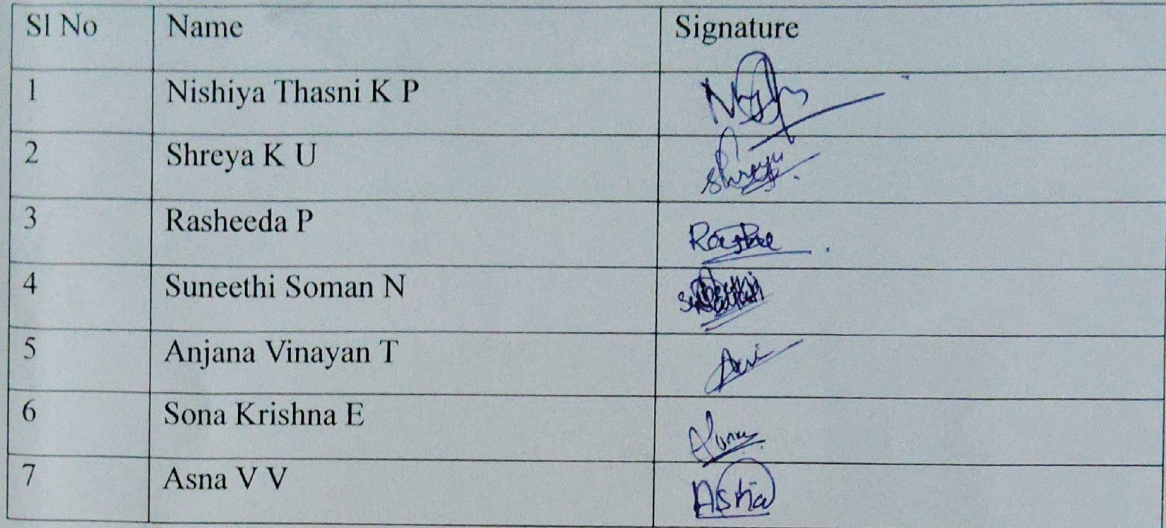 Sl No Name Signature
1 Nishiya Thasni K P
2 Shreya K U Shreya
3 Rasheeda P
4 Suneethi Soman N
5 Anjana Vinayan T
6 Sona Krishna E
7 Asna V V Asna